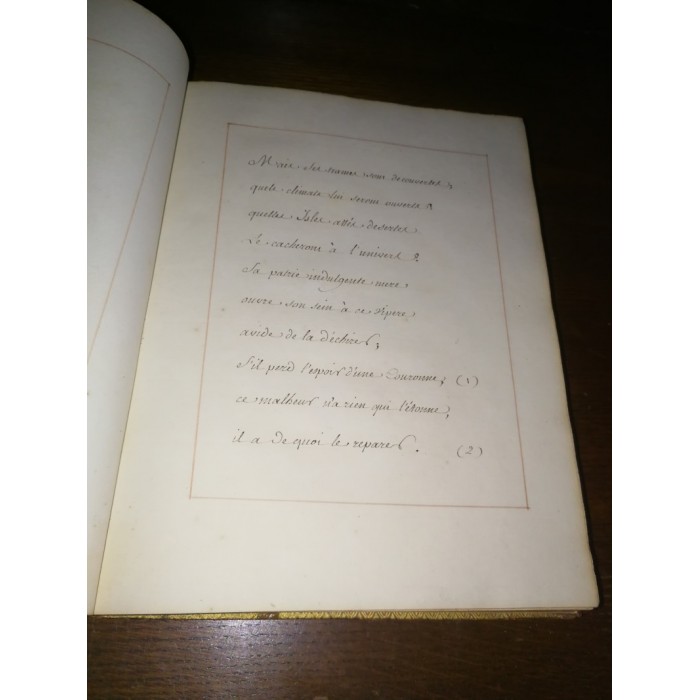 Mais ses trames sont decouvertes ;
quels climats lui seront ouverts ?
quelles Isles assés desertes
Le cacheront à l'univers ?
Sa patrie indulgente mere
ouvre son sein à ce vipere
avide de la déchirer,
s'il perd l'espoir d'une Couronne, (1)
ce malheur n'a rien qui l'étonne,
il a de quoi le reparer. (2)